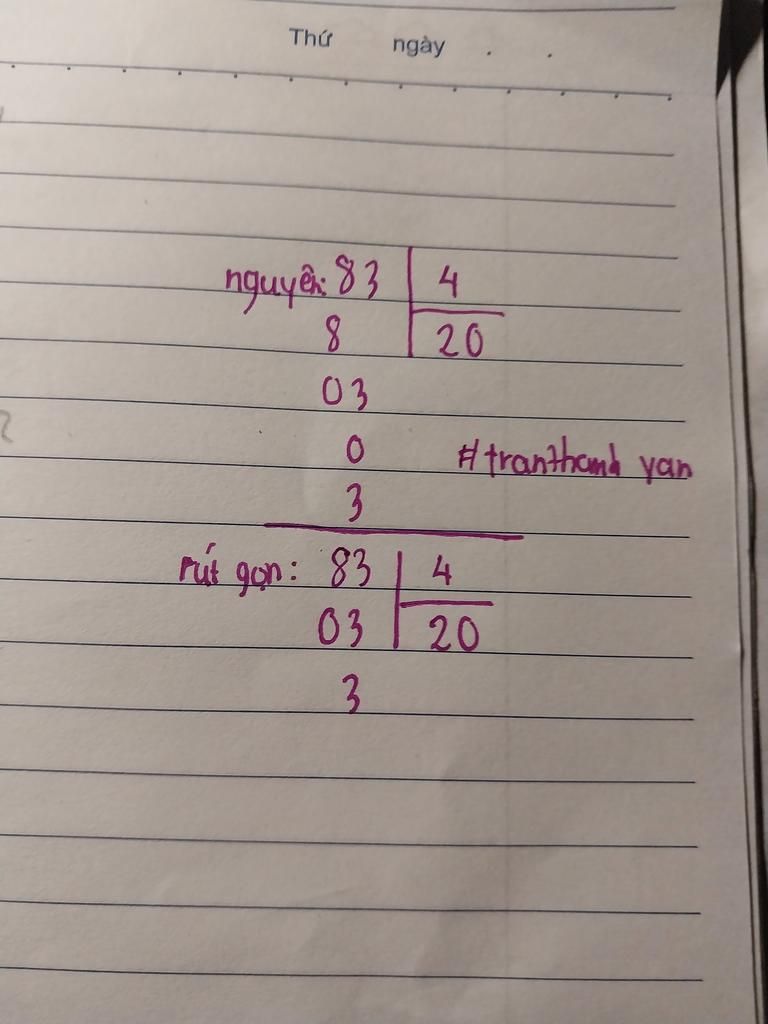 Thứ ngày . .
nguyên: 83 4
8 20
03
0 #tranthanh van
3
rút gọn: 83 4
03 20
3